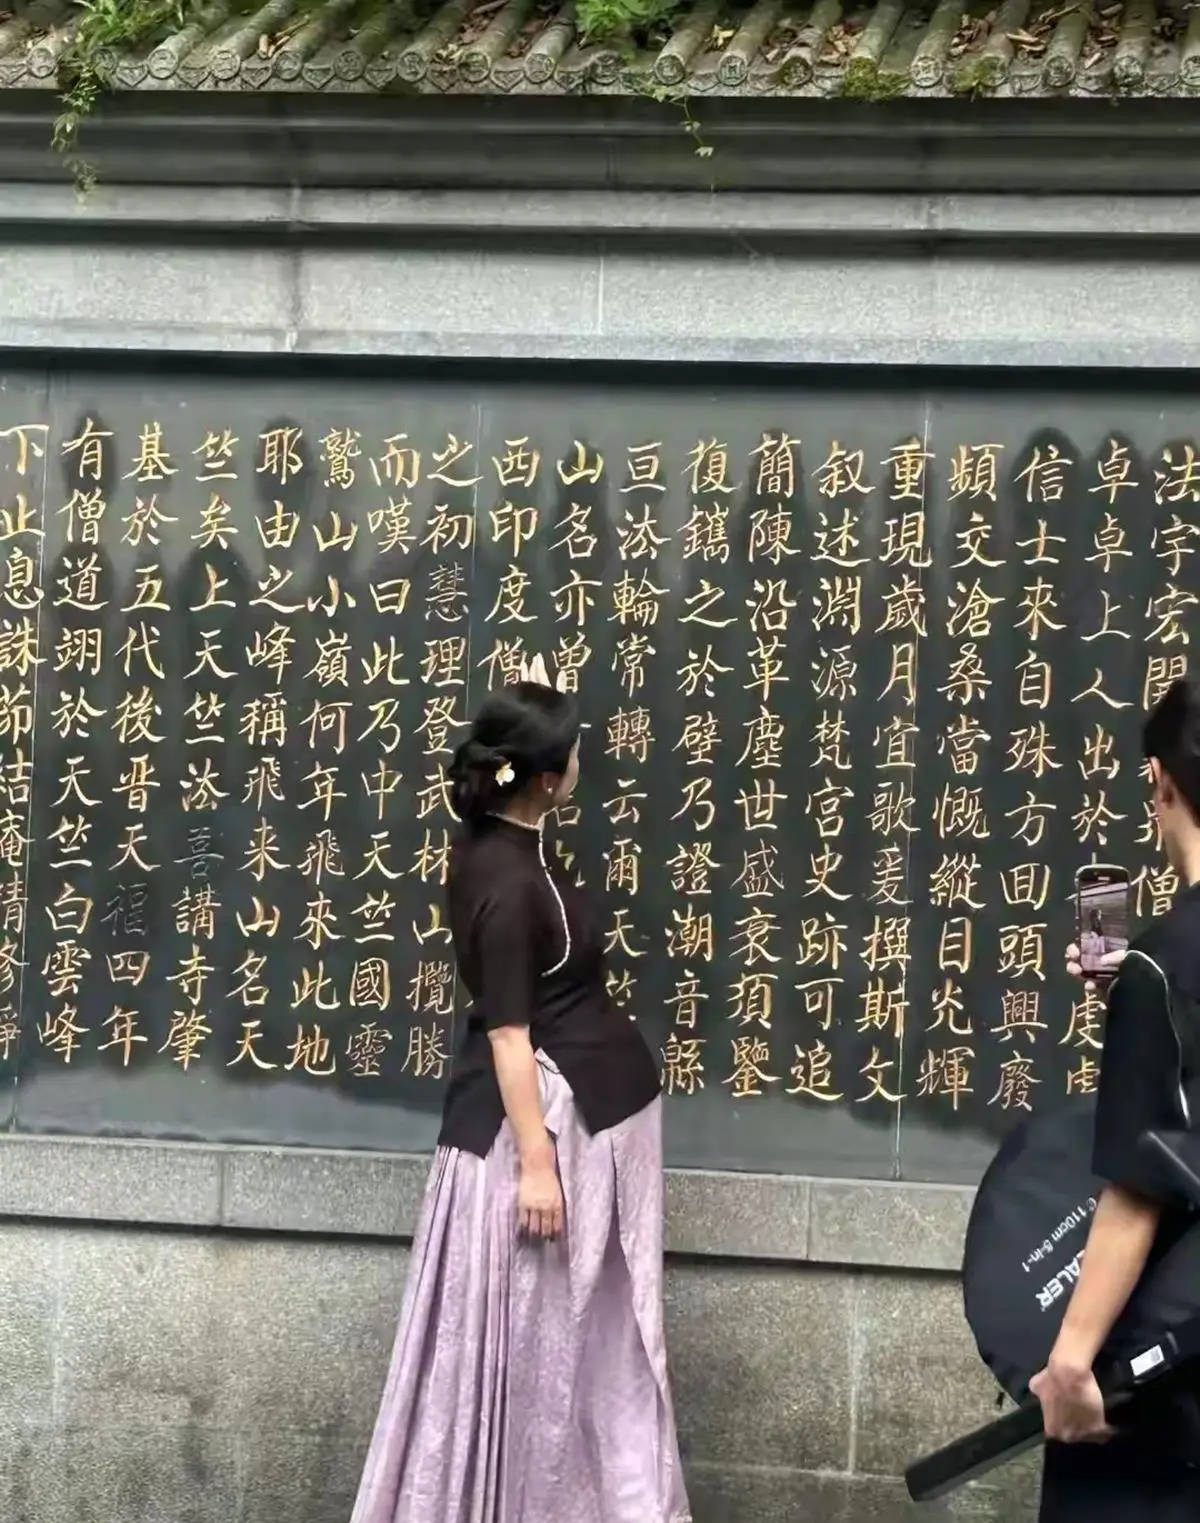 法宇宏開僧
卓卓上人出於虔虔
信士來自殊方囬頭興廢
頻交滄桑當慨縱目光輝
重現歲月宜歌爰撰斯文
叙述淵源梵宮史跡可追
簡陳沿革塵世盛衰須鑒
復鐫之於壁乃證潮音緜
亘法輪常轉云爾天竺
山名亦曾
西印度僧
之初慧理登武林山攬勝
而嘆曰此乃中天竺國靈
鷲山小嶺何年飛來此地
耶由之峰稱飛来山名天
竺矣上天竺法喜講寺肇
基於五代後晋天福四年
有僧道翊於天竺白雲峰
下止息誅茆結庵精修淨
110cm 5-in-1